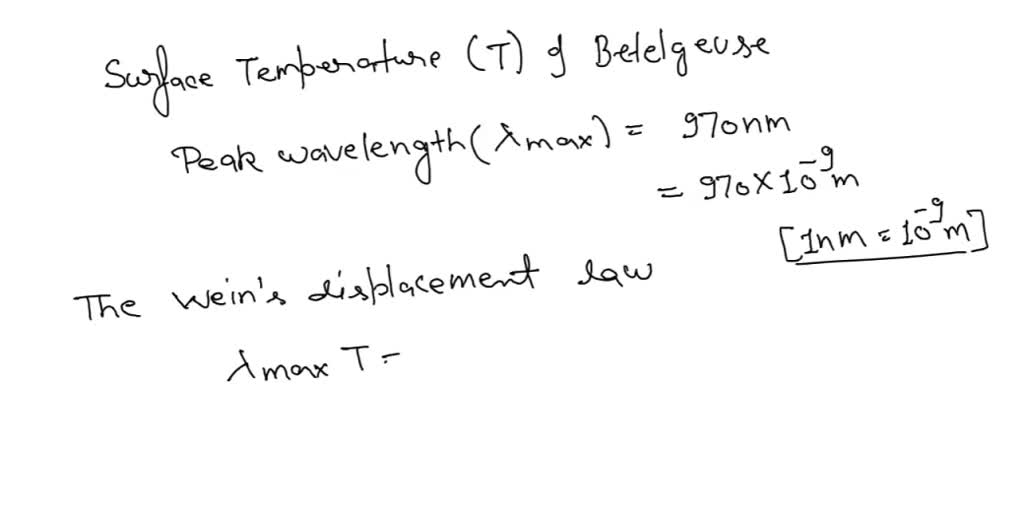 Surface Temperature (T) of Betelgeuse
Peak wavelength (λmax) = 970nm
= 970 × 10⁻⁹m
[1nm = 10⁻⁹m]
The wein's displacement law
λmax T =